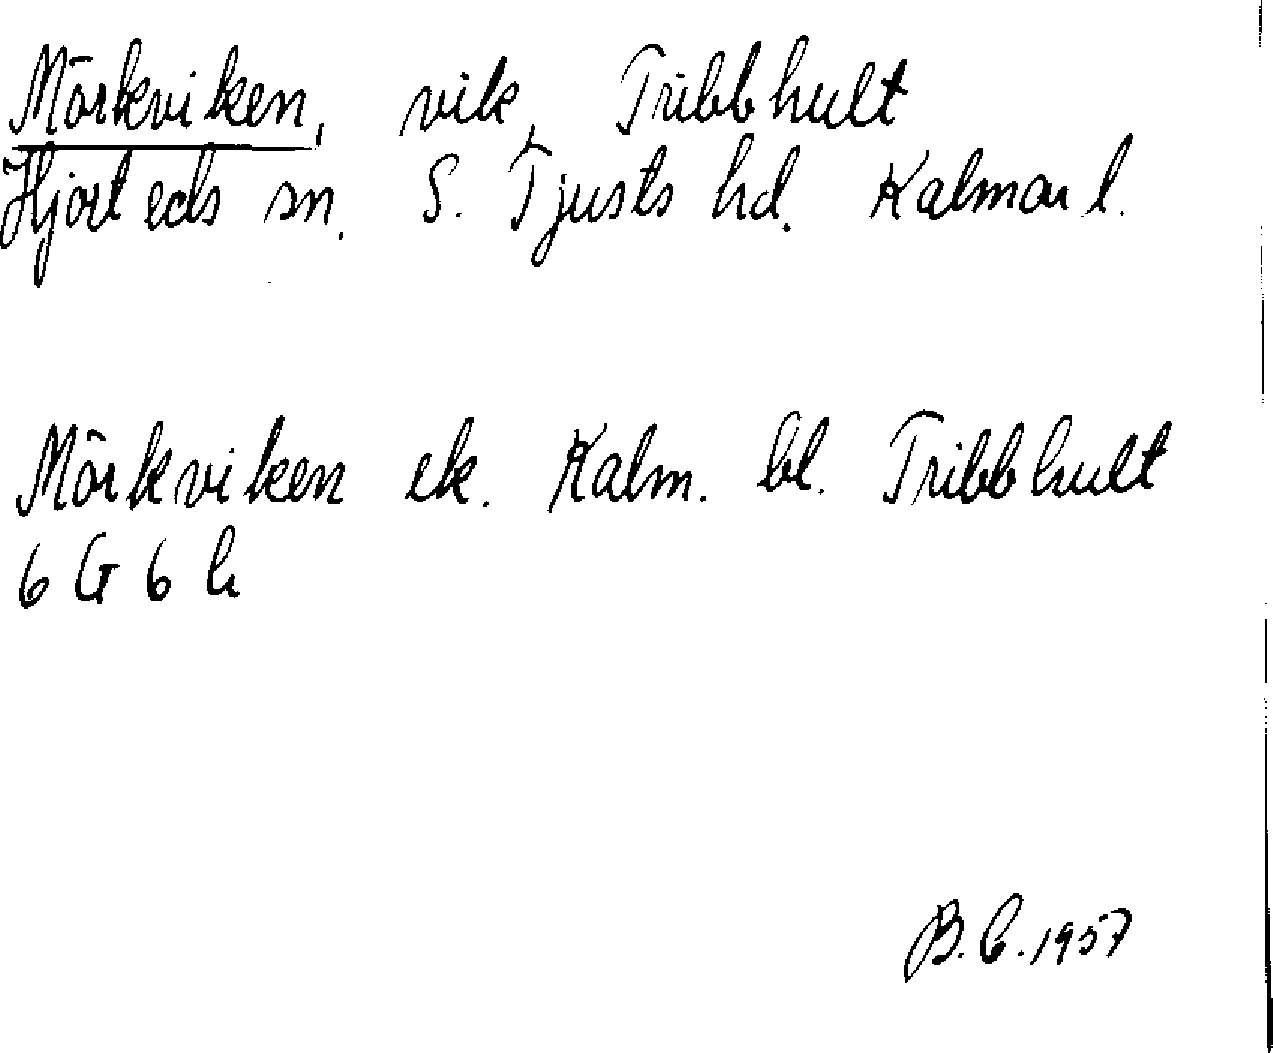 Mörkviken, vik, Tribbhult
Hjorteds sn. S. Tjusts hd. Kalmar l.
Mörkviken ek. Kalm. bl. Tribbhult
6 G 6 h
B.C. 1957